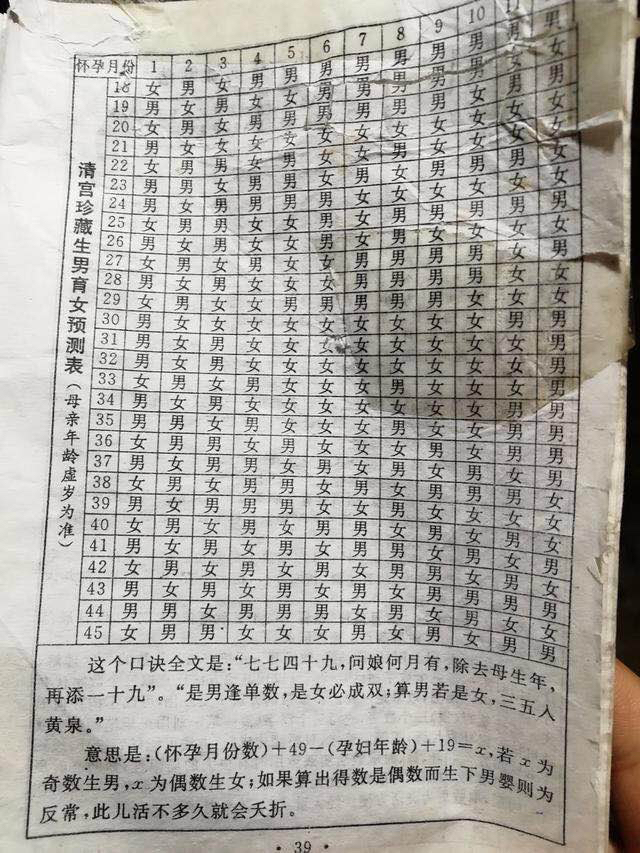 怀孕月份 1 2 3 4 5 6 7 8 9 10 11
18 女 男 女 男 男 男 男 男 男 男 男 男
19 男 女 男 女 女 男 男 男 男 男 女 女
20 女 男 女 男 男 男 男 男 男 女 男 男
21 男 女 女 女 女 女 女 女 女 女 女 女
22 女 男 男 女 男 女 女 男 女 女 女 女
23 男 男 女 男 男 女 男 女 男 男 男 女
24 男 女 男 男 女 男 男 女 女 女 女 女
25 女 男 男 女 女 男 女 男 男 男 男 男
26 男 女 男 女 女 男 女 男 女 女 女 女
27 女 男 女 男 女 女 男 男 男 男 女 男
28 男 女 男 女 女 女 男 男 男 男 女 女
29 女 男 女 女 男 男 男 男 男 女 女 女
30 男 女 女 女 女 女 女 女 女 女 男 男
31 男 女 男 女 女 女 女 女 女 女 女 男
32 男 女 男 女 女 女 女 女 女 女 女 男
33 女 男 女 男 女 女 女 男 女 女 女 男
34 男 女 男 女 女 女 女 女 女 女 男 男
35 男 男 女 男 女 女 女 男 女 女 男 男
36 女 男 男 女 男 女 女 女 男 男 男 男
37 男 女 男 男 女 男 女 男 女 男 女 男
38 女 男 女 男 男 女 男 女 男 女 男 女
39 男 女 男 男 男 女 女 男 女 男 女 女
40 女 男 女 男 女 男 男 女 男 女 男 女
41 男 女 男 女 男 女 男 男 女 男 女 男
42 女 男 女 男 女 男 女 男 男 女 男 女
43 男 女 男 女 男 女 男 女 男 男 男 男
44 男 男 女 男 男 男 女 男 女 男 女 女
45 女 男 男 女 女 女 男 女 男 女 男 男
清宫珍藏生男育女预测表(母亲年龄虚岁为准)
这个口诀全文是:“七七四十九,问娘何月有,除去母生年,
再添一十九”。“是男逢单数,是女必成双;算男若是女,三五入
黄泉。”
意思是:(怀孕月份数)+49-(孕妇年龄)+19=x,若x为
奇数生男,x为偶数生女;如果算出得数是偶数而生下男婴则为
反常,此儿活不多久就会夭折。
· 39 ·